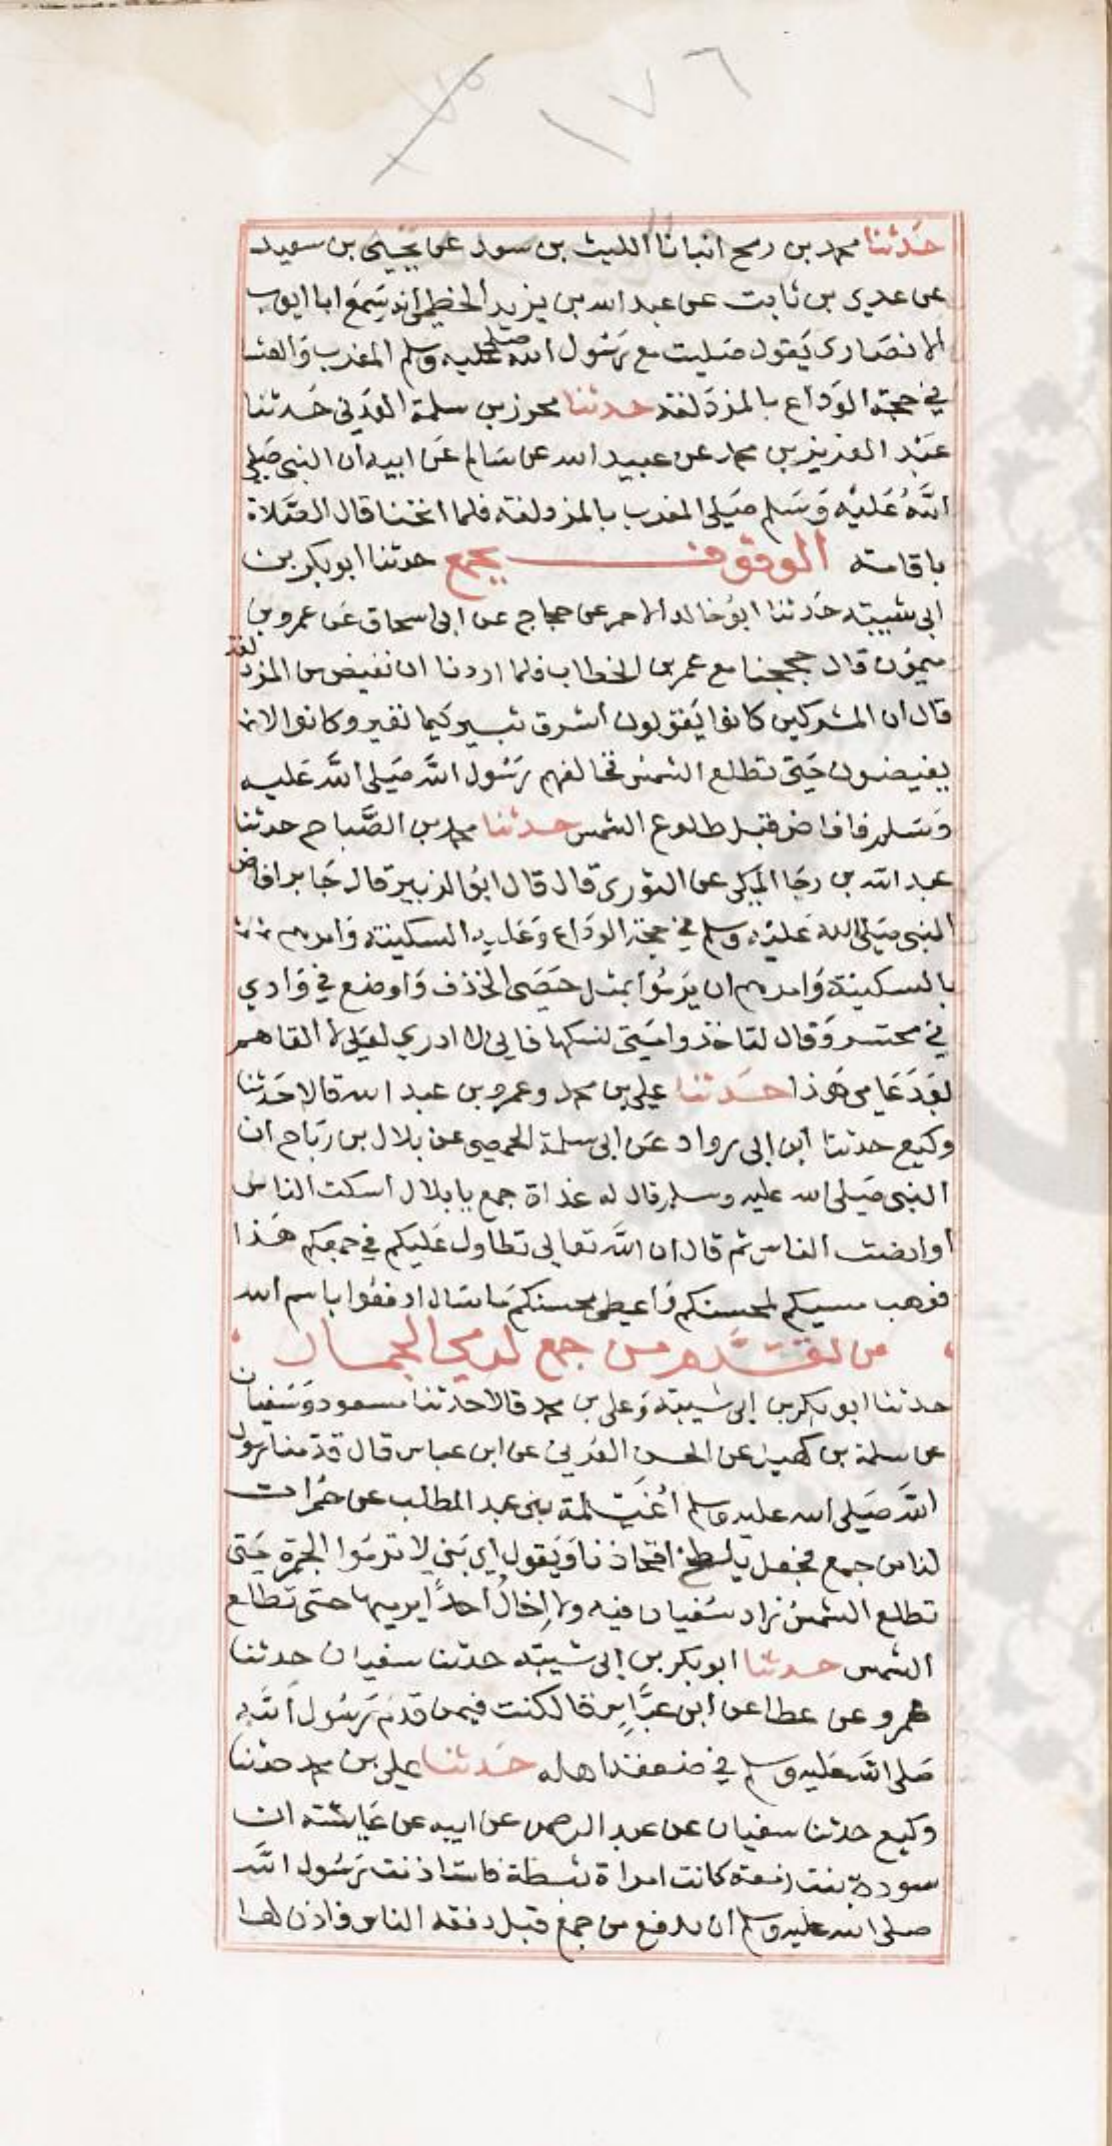 ١٧٦
حدثنا محمد بن رمح انبانا الليث بن سود عن يحيى بن سعيد
عن عدي بن ثابت عن عبد الله بن يزيد الخطمي انه سمع ابا ايوب
الانصاري يقول صليت مع رسول الله صلى عليه وسلم المغرب والعشا
في حجة الوداع بالمزدلفة حدثنا محرز بن سلمة العدني حدثنا
عبد العزيز بن محمد عن عبيد الله عن سالم عن ابيه ان النبي صلى
الله عليه وسلم صلى المغرب بالمزدلفة فلما انخنا قال الصلاة
باقامته الوقوف بجمع حدثنا ابو بكر بن
ابي شيبة حدثنا ابو خالد الاحمر عن حجاج عن ابي اسحاق عن عمرو بن
ميمون قال حججنا مع عمر بن الخطاب فلما اردنا ان نفيض من المزدلفة
قال ان المشركين كانوا يقولون اشرق ثبير كيما نغير وكانوا لا
يفيضون حتى تطلع الشمس فخالفهم رسول الله صلى الله عليه
وسلم فافاض قبل طلوع الشمس حدثنا محمد بن الصباح حدثنا
عبد الله بن رجا المكي عن الثوري قال قال ابو الزبير قال جابر افاض
النبي صلى الله عليه وسلم في حجة الوداع وعليه السكينة وامرهم
بالسكينة وامرهم ان يرموا بمثل حصى الخذف واوضع في وادي
في محسر وقال لتاخذ وامتي لنسكها فاني لا ادري لعلي لا القاهم
بعد عامي هذا حدثنا علي بن محمد وعمرو بن عبد الله قالا حدثنا
وكيع حدثنا ابن ابي رواد عن ابي سلمة الحمصي عن بلال بن رباح ان
النبي صلى الله عليه وسلم قال له غداة جمع يا بلال اسكت الناس
او انصت الناس ثم قال ان الله تعالى تطاول عليكم في جمعكم هذا
فوهب مسيكم لمحسنكم واعطى محسنكم ما سال ادفعوا باسم الله
من تقدم من جمع لرمي الجمار
حدثنا ابو بكر بن ابي شيبة وعلي بن محمد قالا حدثنا مسعود وسفيان
عن سلمة بن كهيل عن الحسن العرني عن ابن عباس قال قدمنا رسول
الله صلى الله عليه وسلم اغيلمة بني عبد المطلب على حمرات
لنا من جمع فجعل يلطح افخاذنا ويقول اي بني لا ترموا الجمرة حتى
تطلع الشمس زاد سفيان فيه ولا اخال احدا يرميها حتى تطلع
الشمس حدثنا ابو بكر بن ابي شيبة حدثنا سفيان حدثنا
عمرو عن عطا عن ابن عباس قال كنت فيمن قدم رسول الله
صلى الله عليه وسلم في ضعفة اهله حدثنا علي بن محمد حدثنا
وكيع حدثنا سفيان عن عبد الرحمن عن ابيه عن عايشة ان
سودة بنت زمعة كانت امراة ثبطة فاستاذنت رسول الله
صلى الله عليه وسلم ان تدفع من جمع قبل دفعة الناس فاذن لها